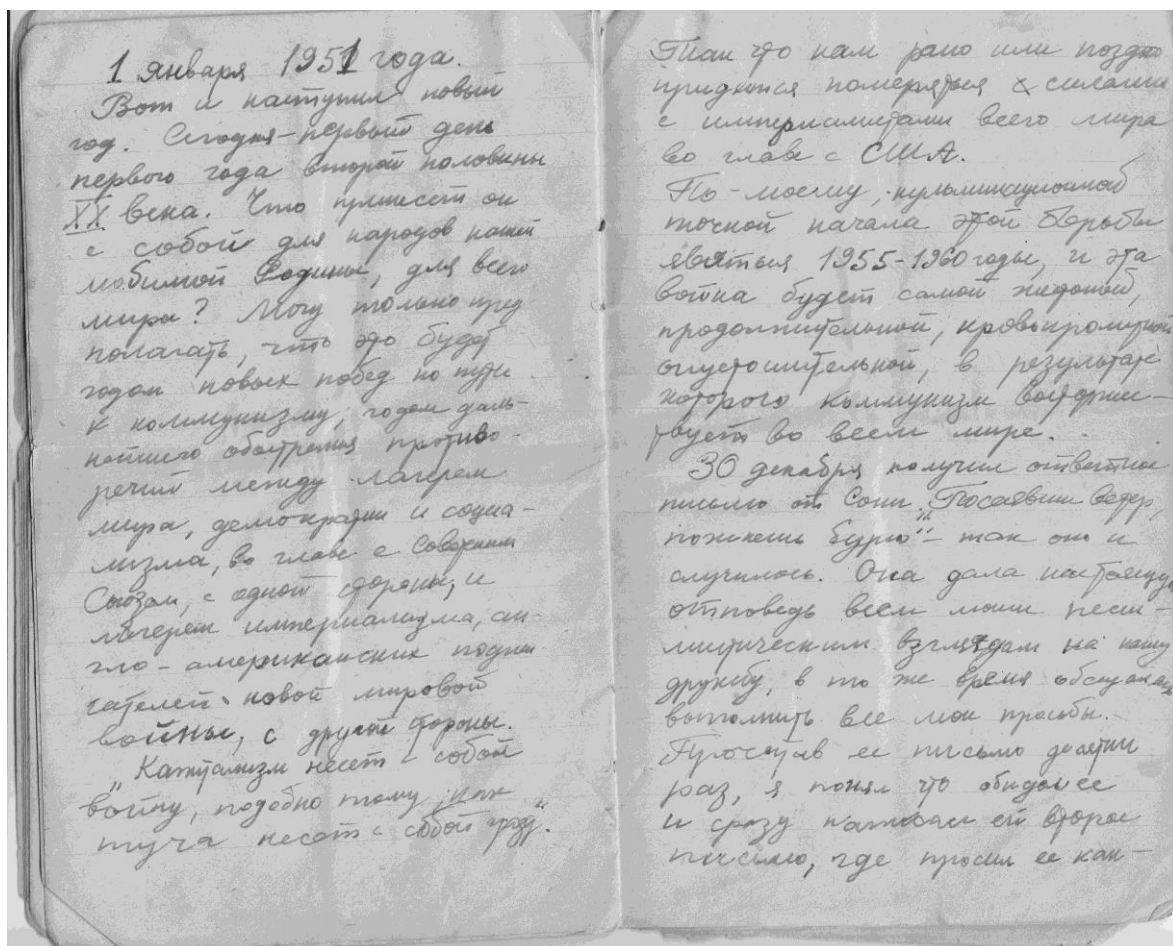 1 января 1951 года.
Вот и наступил новый
год. Сегодня - первый день
первого года второй половины
XX века. Что принесет он
с собой для народов нашей
любимой Родины, для всего
мира? Могу только пред
полагать, что это будет
годом новых побед на пути
к коммунизму, годом даль-
нейшего обострения противо-
речий между лагерем
мира, демократии и социа-
лизма, во главе с Советским
Союзом, с одной стороны, и
лагерем империализма, ан-
гло-американских поджи
гателей новой мировой
войны, с другой стороны.
"Капитализм несет с собой
войну, подобно тому, как
туча несет с собой грозу".
Так что нам рано или поздно
придется померяться силами
с империалистами всего мира
во главе с США.
По-моему, кульминационной
точкой начала этой борьбы
явятся 1955-1960 годы, и эта
война будет самой жестокой,
продолжительной, кровопролитной
опустошительной, в результате
которого коммунизм восторже-
ствует во всем мире.
30 декабря получил ответное
письмо от Сони. "Посеявши ветер,
пожнешь бурю" - так оно и
случилось. Она дала настоящую
отповедь всем моим песси-
мистическим взглядам на нашу
дружбу, в то же время обещала
выполнить все мои просьбы.
Прочитав ее письмо десятки
раз, я понял что обидел ее
и сразу написал ей второе
письмо, где просил ее как-